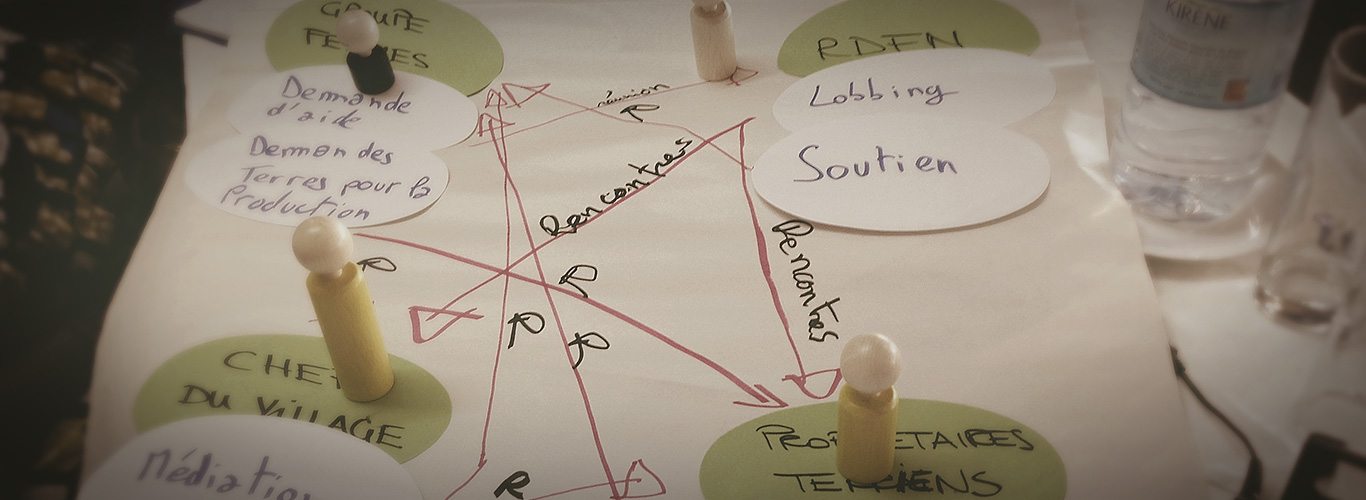 GROUPE
FEMMES
Demande
d'aide
Demandes
Terres pour la
Production
RDFN
Lobbing
Soutien
KIRENE
réunion
R
Rencontres
Rencontres
R
R
R
R
CHEF
DU VILLAGE
Médiation
PROPRIETAIRES
TERRIENS
R